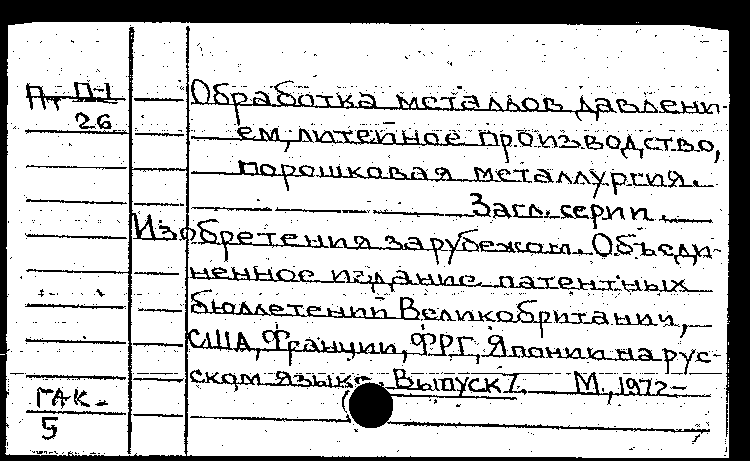 Пт П-1
26
Обработка металлов давлени-
ем, литейное производство,
порошковая металлургия.
Загл. серии.
Изобретения за рубежом. Объеди-
ненное издание патентных
бюллетений Великобритании,
США, Франции, ФРГ, Японии на рус-
ском языке. Выпуск 7. М., 1972-
ГАК-
5